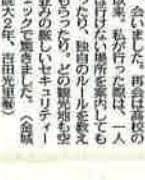 会いました。再会は高校の
以来。私が行った際は、一人
は行けない場所を案内しても
ったり、独自のルールを教え
もらったり。どの観光地も空
並みの厳しいセキュリティー
ックで驚きました。（金城
院大2年、吉田光里